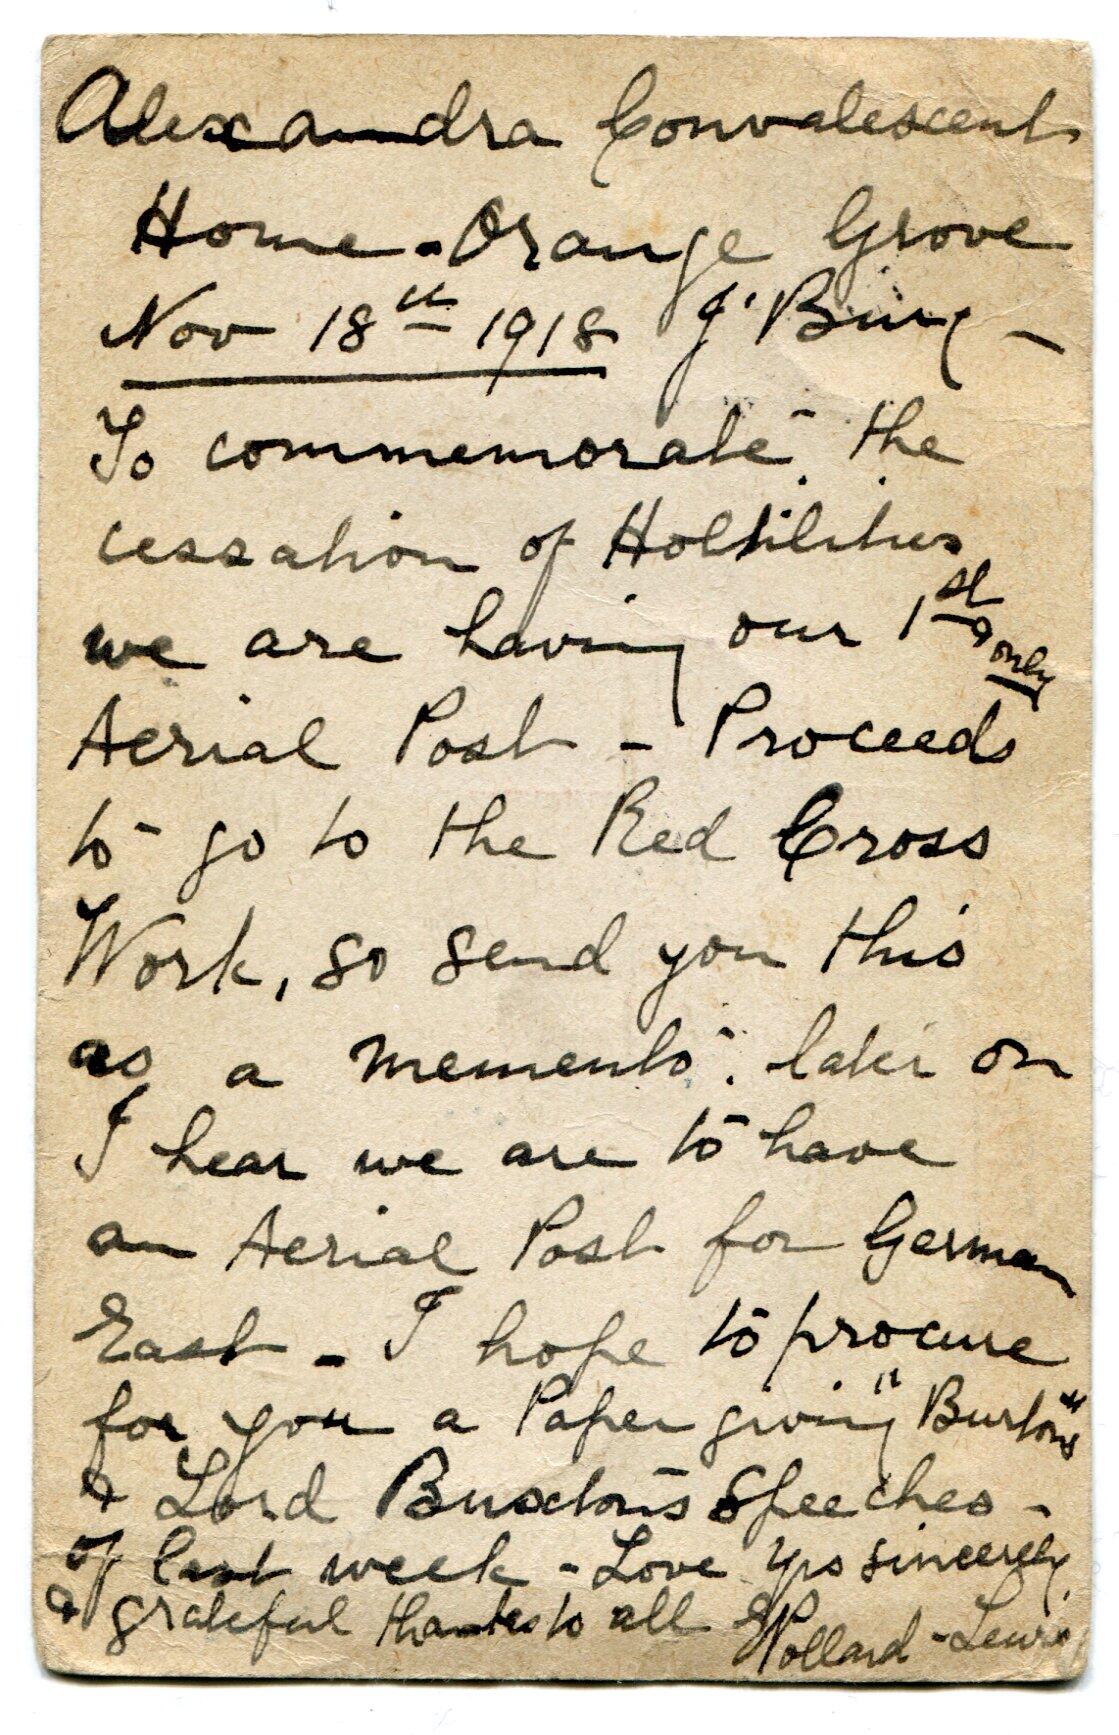 Alexandra Convalescent
Home - Orange Grove
Nov 18th 1918 J'Burg -
To commemorate the
cessation of Hostilities
we are having our 1st & only
Aerial Post - Proceeds
to go to the Red Cross
Work, so send you this
as a memento. later on
I hear we are to have
an Aerial Post for German
East - I hope to procure
for you a Paper giving "Burton's"
& Lord Buxton's Speeches -
of last week - Love yrs sincerely
& grateful thanks to all Pollard-Lewis